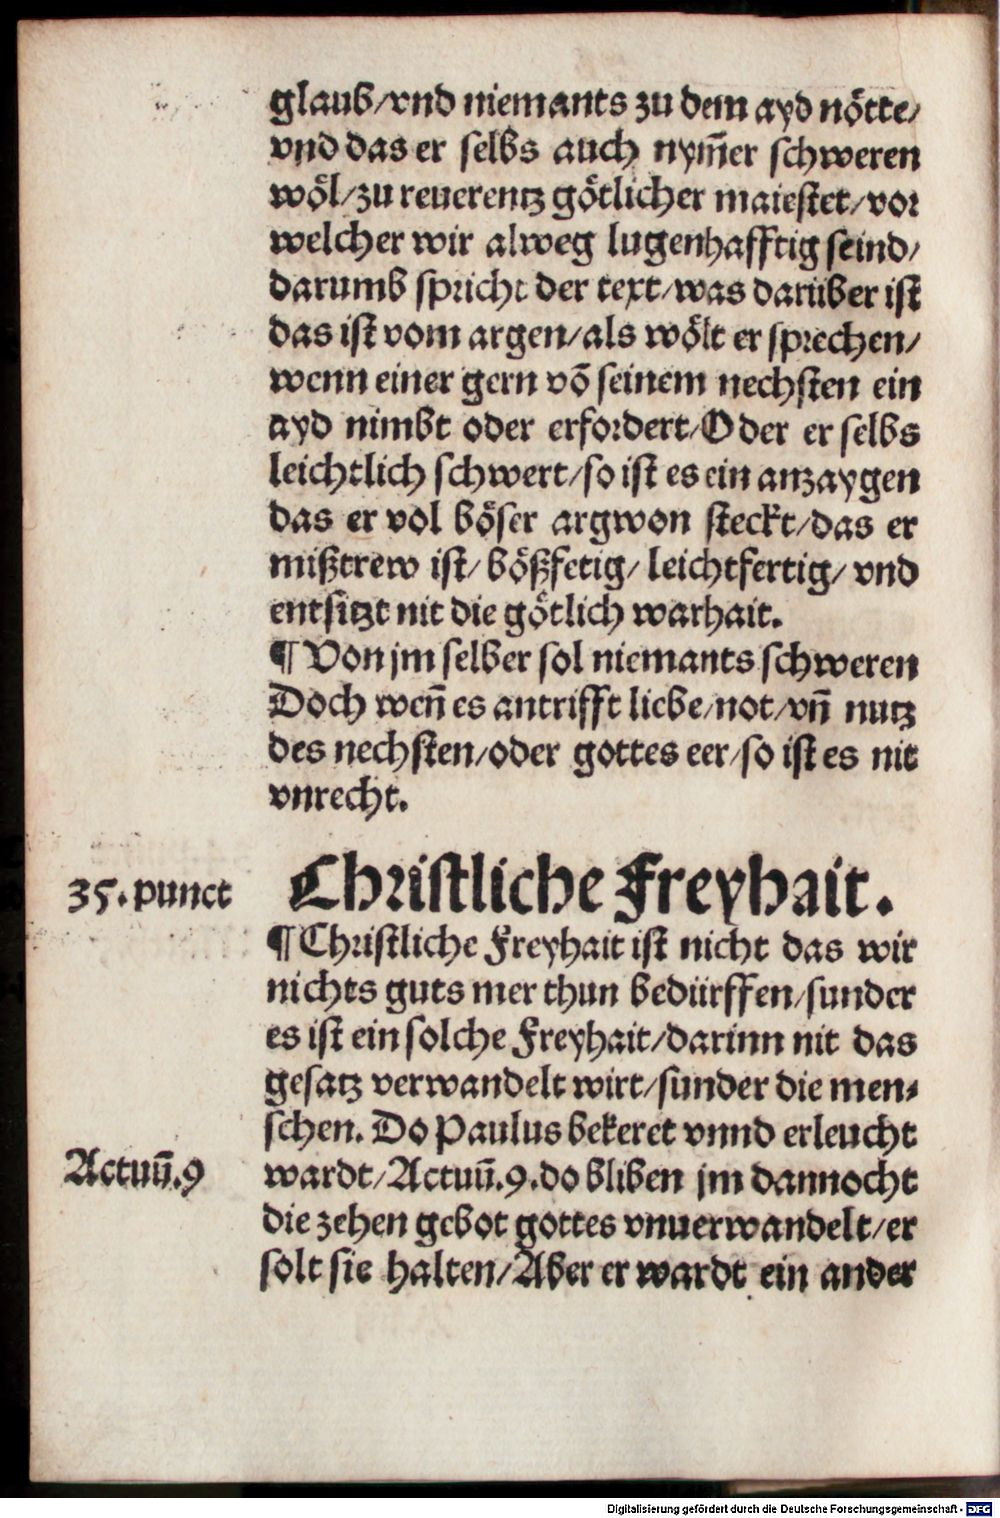 glaub/vnd niemants zu dem ayd nötte/
vnd das er selbs auch nym̃er schweren
wöl/zu reuerentz götlicher maiestet/vor
welcher wir alweg lugenhafftig seind/
darumb spricht der text/was darüber ist
das ist vom argen/als wölt er sprechen/
wenn einer gern võ seinem nechsten ein
ayd nimbt oder erfordert/Oder er selbs
leichtlich schwert/so ist es ein anzaygen
das er vol böser argwon steckt/das er
mißtrew ist/ bößfetig/ leichtfertig/ vnd
entsitzt nit die götlich warhait.
¶ Von jm selber sol niemants schweren
Doch weñ es antrifft liebe/not/vñ nutz
des nechsten/oder gottes eer/so ist es nit
vnrecht.
35. punct
Christliche Freyhait.
¶ Christliche Freyhait ist nicht das wir
nichts guts mer thun bedürffen/sunder
es ist ein solche Freyhait/darinn nit das
gesatz verwandelt wirt/sunder die men⸗
schen. Do Paulus bekeret vnnd erleucht
Actuũ.9
wardt/Actuũ.9.do bliben jm dannocht
die zehen gebot gottes vnuerwandelt/er
solt sie halten/Aber er wardt ein ander
Digitalisierung gefördert durch die Deutsche Forschungsgemeinschaft - DFG